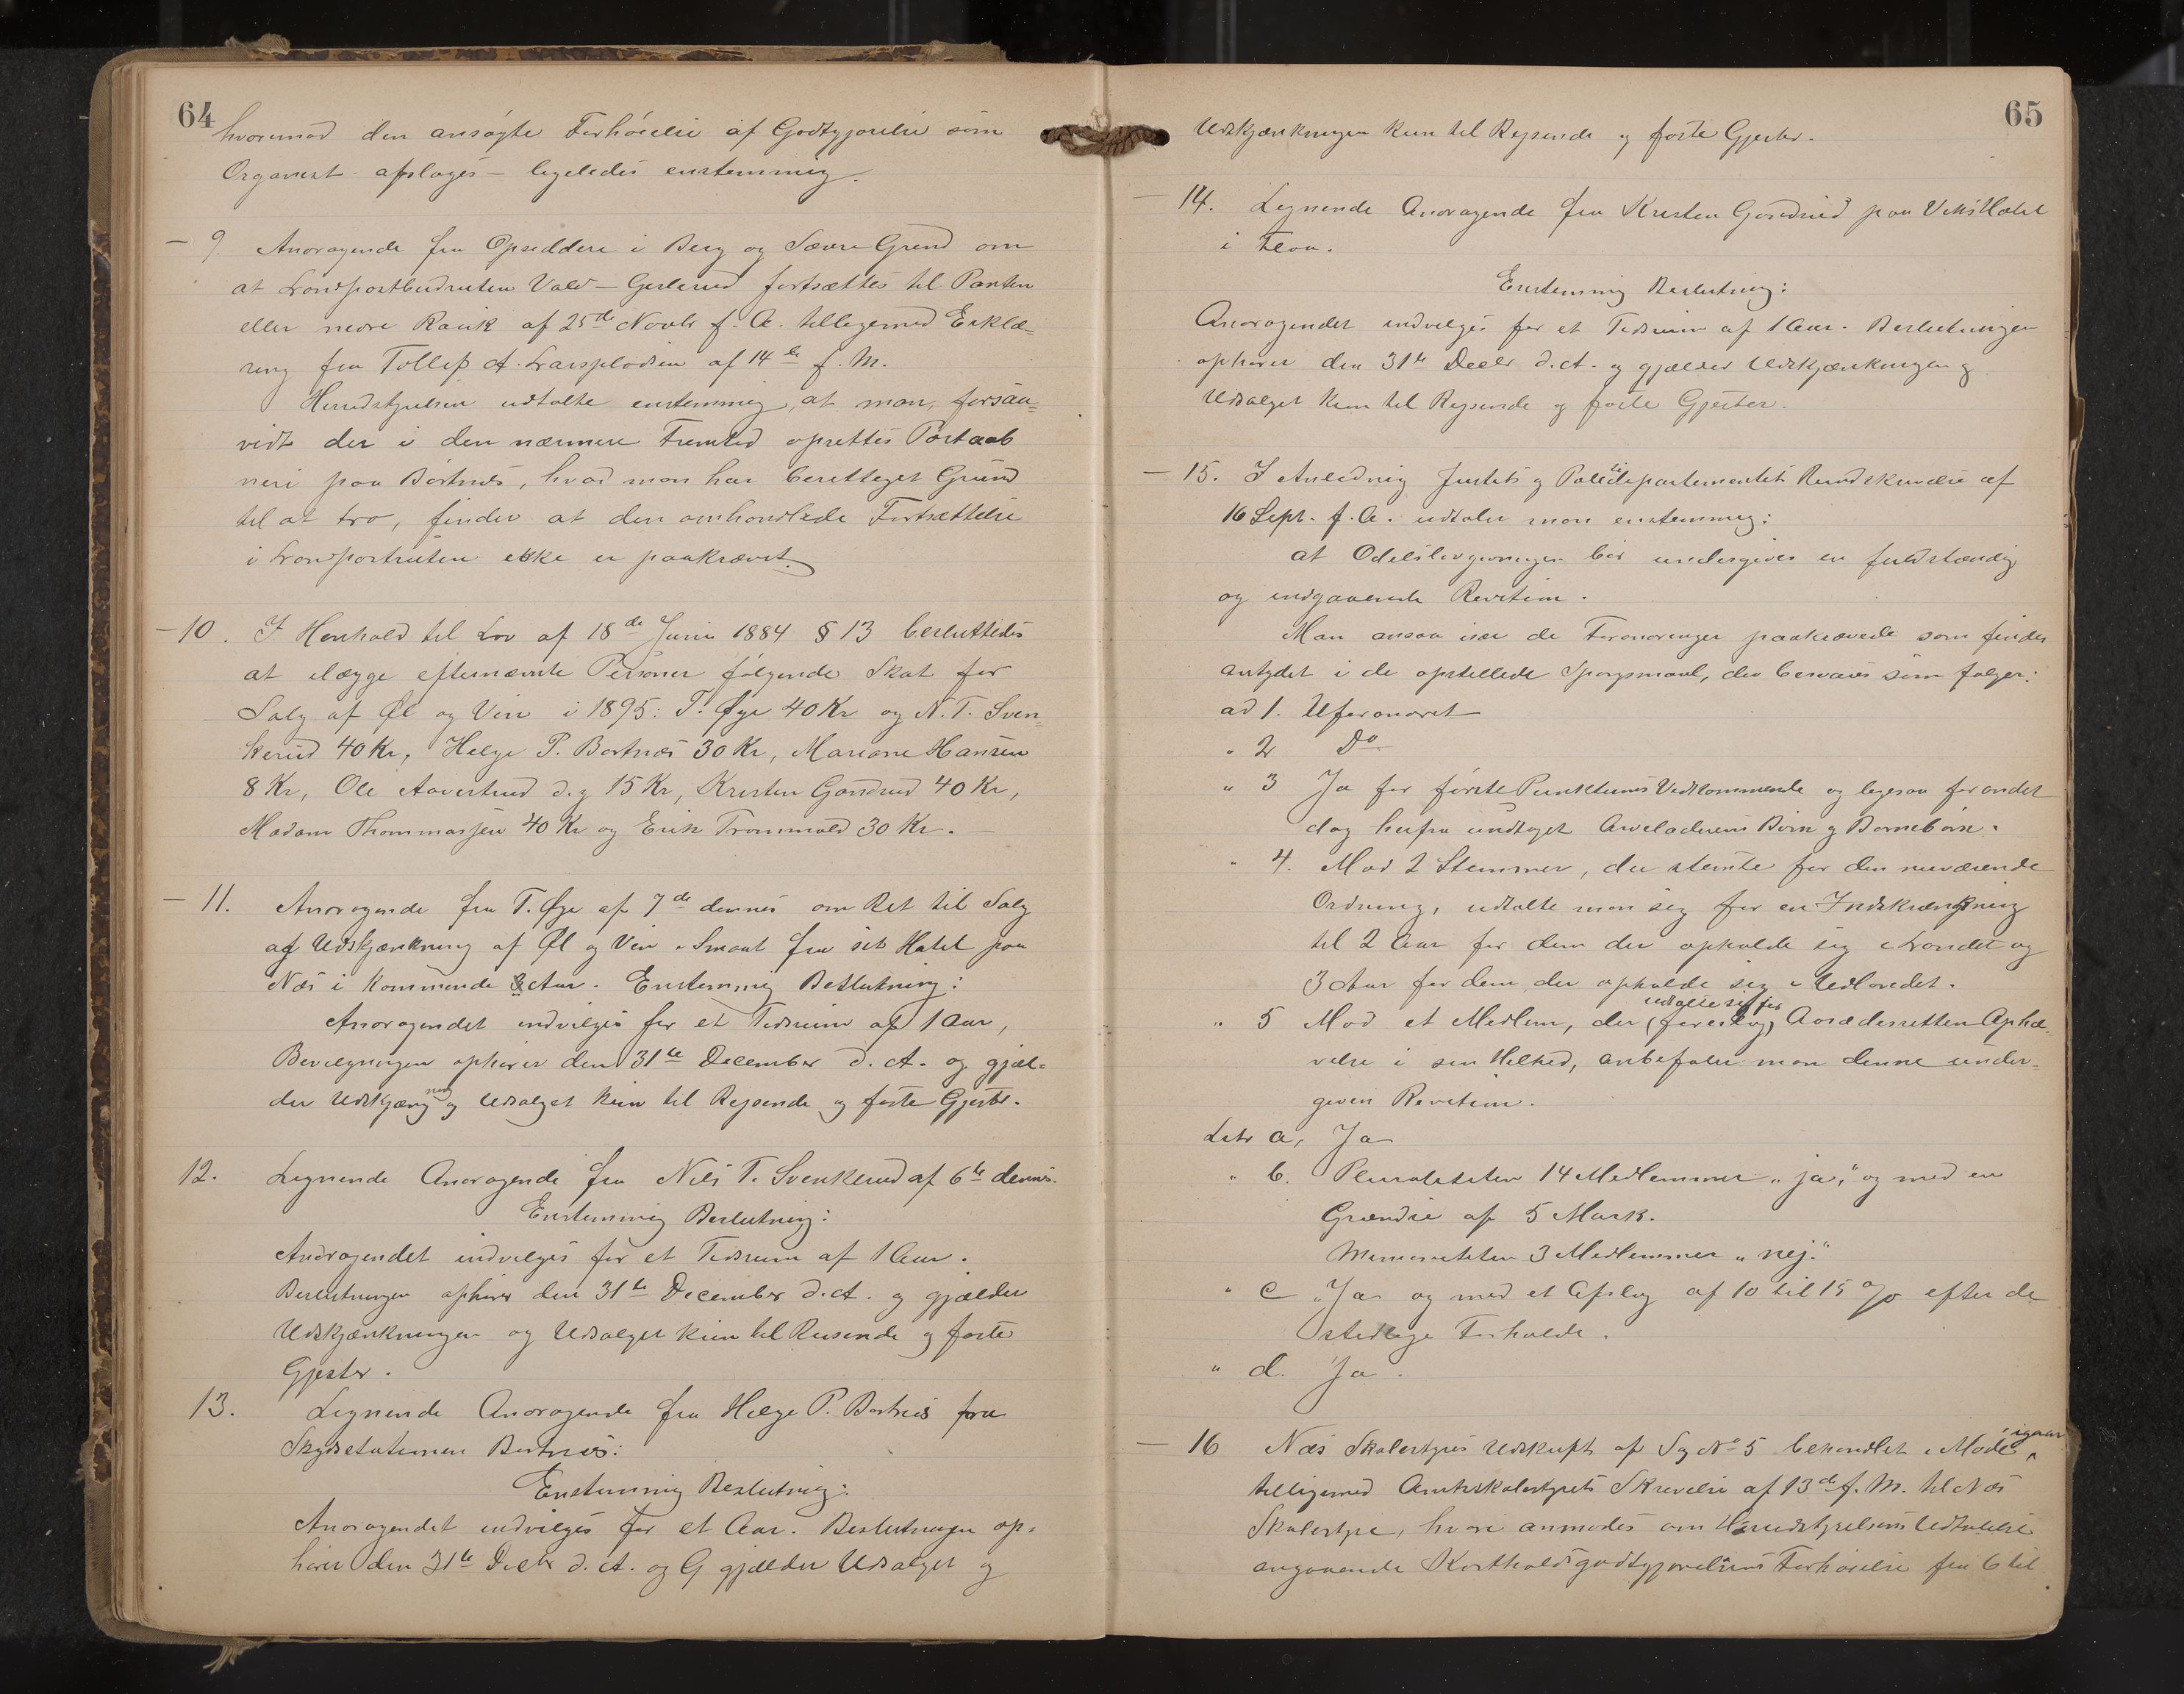 64
hvorimod den ansøgte Forhøielse af Godtgjørelse som
Organist afsloges – ligeledes enstemmig.
– 9. Andragende fra Opsiddere i Berg og Sævre Grend om
at Landpostbudruten Vald – Geilerud fortsættes til Porten
eller nedre Rauk af 25de Novbr f. A. tilligemed Erklæ=
ring fra Tollef A. Larsplodsen af 14de f. M.
Herredstyrelsen udtalte enstemmig, at man, forsaa=
vidt der i den nærmere Fremtid oprettes Postaab
neri paa Børtnes, hvad man har berettiget Grund
til at tro, finder at den omhandlede Fortsættelse
i Landpostruten ikke er paakrævet.
– 10. I Henhold til Lov af 18de Juni 1884 § 13 besluttedes
at ilægge efternævnte Personer følgende Skat for
Salg af Øl og Vin i 1895: T. Øye 40 Kr og N. T. Sven=
kerud 40 Kr, Helge P. Bortnæs 30 Kr, Mariane Hansen
8 Kr, Ole Aavestrud d. y 15 Kr, Kristen Gandrud 40 Kr,
Madam Thommassen 40 Kr og Erik Trommald 30 Kr.
– 11. Andragende fra T. Øye af 7de dennes om Ret til Salg
af Udskjænkning af Øl og Vin i Smaat fra sit Hotel paa
Næs i kommende 3 Aar. Enstemmig Beslutning:
Andragendet indvilges for et Tidsrum af 1 Aar,
Bevilgningen ophører den 31te December d. A. og gjæl=
der Udskjæng ning og Udsalget kun til Reisende og faste Gjester.
12. Lignende Andragende fra Nils T. Svenkerud af 6te dennes.
Enstemmig Beslutning:
Andragendet indvilges for et Tidsrum af 1 Aar.
Beslutningen ophører den 31te December d. A. og gjælder
Udskjænkningen og Udsalget kun til Reisende og faste
Gjester.
13. Lignende Andragende fra Helge P. Bortnes fra
Skydsstationen Bortnes:
Enstemmig Beslutning:
Andragendet indvilges for et Aar. Beslutningen op=
hører den 31te Decbr d. A. og G gjælder Udsalget og
65
Udskjænkningen kun til Rejsende og faste Gjester.
– 14. Lignende Andragende fra Kristen Gandrud paa Viks Hotel
i Flaa.
Enstemmig Beslutning:
Andragendet indvilges for et Tidsrum af 1 Aar. Beslutningen
ophører den 31te Decbr d. A. og gjælder Udskjænkningen og
Udsalget kun til Rejsende og faste Gjester.
– 15. I Anledning Justits og Politidepartementets Rundskrivelse af
16 Sept. f. A. udtaler man enstemmig:
at Odelslovgivningen bør undergives en fuldstændig
og indgaaende Revision.
Man ansaa især de Forandringer paakrævede som findes
antydet i de opstillede Spørgsmaal, der besvares som følger:
ad 1. Uforandret
" 2 Do
" 3 Ja for første Punktums Vedkommende og ligesaa for andet
dog herfra undtaget Arveladerens Børn og Børnebørn.
" 4. Mod 2 Stemmer, der stemte for den nuværende
Ordning, udtalte man sig for en Indskrænkning
til 2 Aar for dem der opholde sig i Landet og
3 Aar for dem der opholde sig i Udlandet.
udtalte sig for
" 5 Mod et Medlem, der (foreslog) Aasædesrettens Ophæ=
velse i sin Helhed, anbefaler man denne under=
given Revision.
Litr a, Ja
" b. Pluraliteten 14 Medlemmer „ja," og med en
Grændse af 5 Mark.
Minoriteten 3 Medlemmer „nej."
" c „Ja og med et Afslag af 10 til 15 % efter de
stedlige Forholde.
" d. Ja.
– 16 Næs Skolestyres Udskrift af Sag No 5 behandlet i Møde igaar
tilligemed Amtsskolestyrets Skrivelse af 13de f. M. til Næs
Skolestyre, hvori anmodes om Herredstyrelsens Udtalelse
angaaende Kostholdsgodtgjørelsens Forhøielse fra 6 til